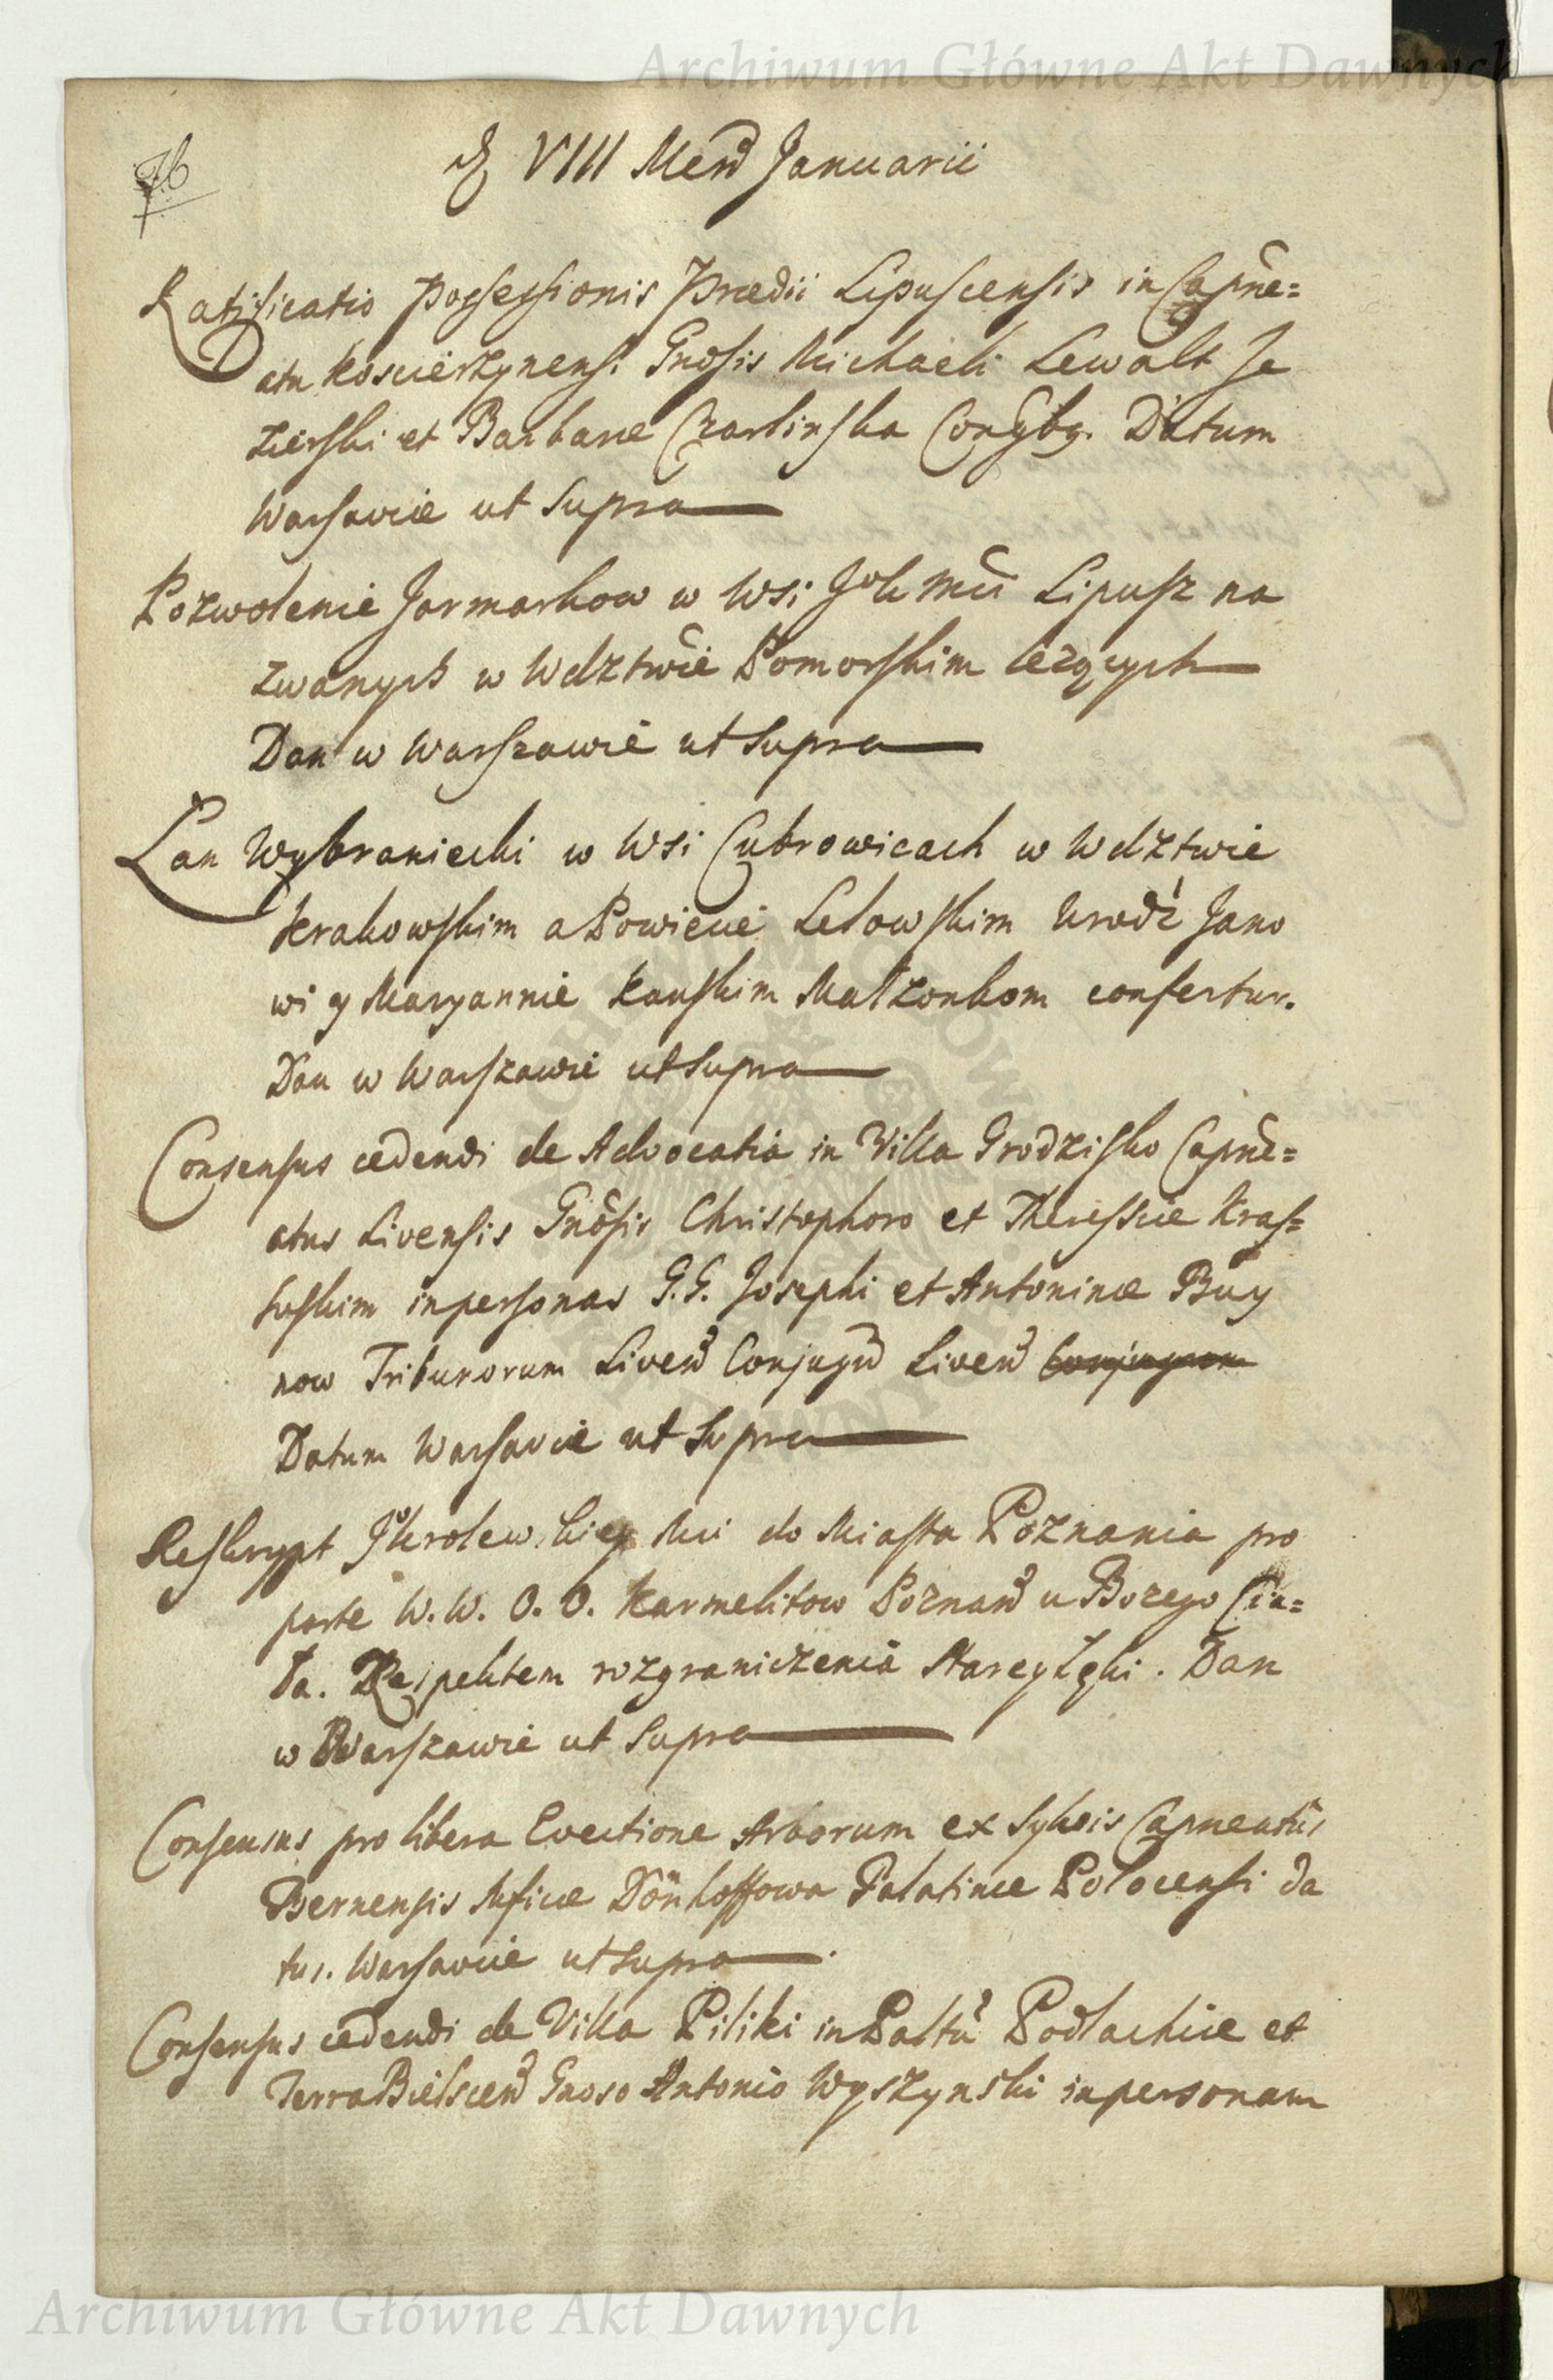 Archiwum Główne Akt Dawnych
76
VIII Menẽ Januarii
Ratificatio possessionis Prædii Lipuscensis in Capñe=
atu Koscierzynensi Gnosis Michaeli Lewalt Je
zierski et Barbaræ Czarlinska Conjgbg. Datum
Warsaviæ ut supra
Pozwolenie Jarmarkow w Wsi JKMci Lipusz na
zwanych w Wdztwie Pomorskim lezących
Dan w Warszawie ut supra
Łan Wybraniecki w Wsi Cubrowicach w Wdztwie
Krakowskim a Powiecie Lelowskim Urodź Jano
wi y Maryannie Kauskim Małżonkom confertur.
Dan w Warszawie ut supra
Consensus cedendi de Advocatia in Villa Grodzisko Capñe=
atus Livensis Gnosis Christophoro et Theressiæ Kras=
suskim in personas G.G. Josephi et Antoninæ Buy
now Tribunorum Liveñ Conjugũ Liveñ Conjugum
Datum Warsaviæ ut supra
Reskrypt JKrolewskiey Mci do Miasta Poznania pro
parte W.W. O.O. Karmelitow Poznañ u Bozego Cia=
ła. Respektem rozgraniczenia Starey Łąki. Dan
w Warszawie ut supra
Consensus pro libera Evectione Arborum ex Sylvis Capneatus
Bernensis Mficæ Dönhoffowa Palatinæ Polocensi da
tus. Warsaviæ ut supra
Consensus cedendi de Villa Piliki in Paltũ Podlachiæ et
Terra Bielsceñ Gnoso Antonio Wyszynski in personam
Archiwum Główne Akt Dawnych